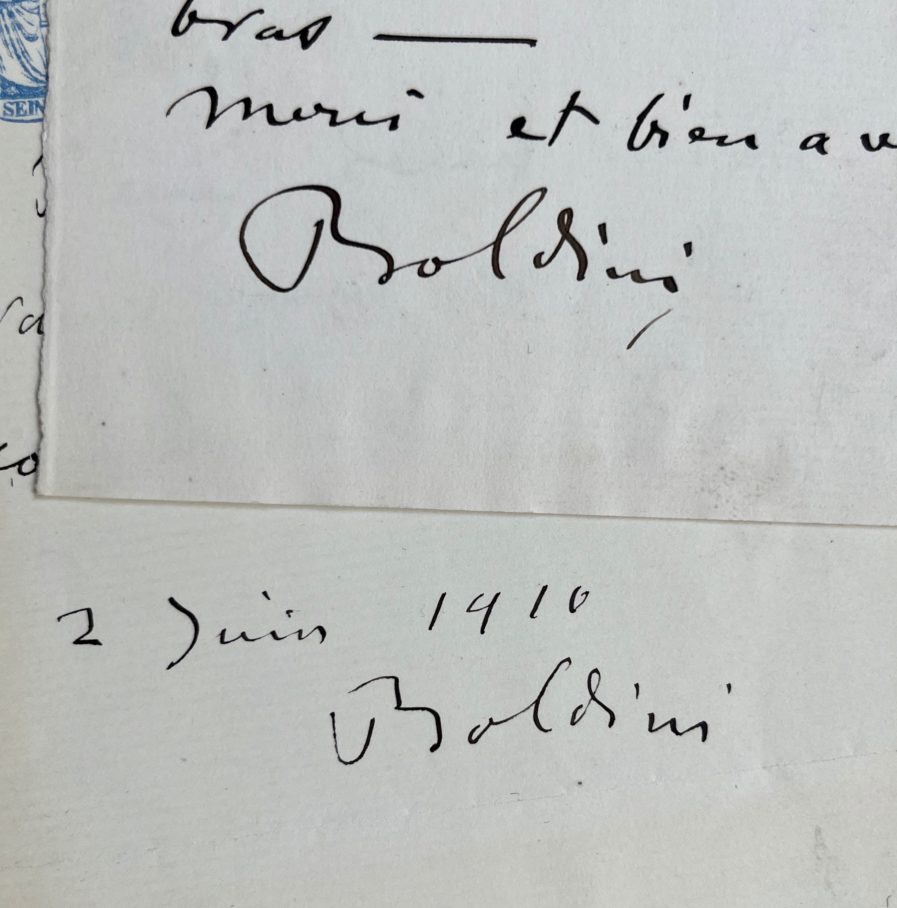 bras —
SEIN
Merci et bien a v
Boldini
2 Juin 1910
Boldini